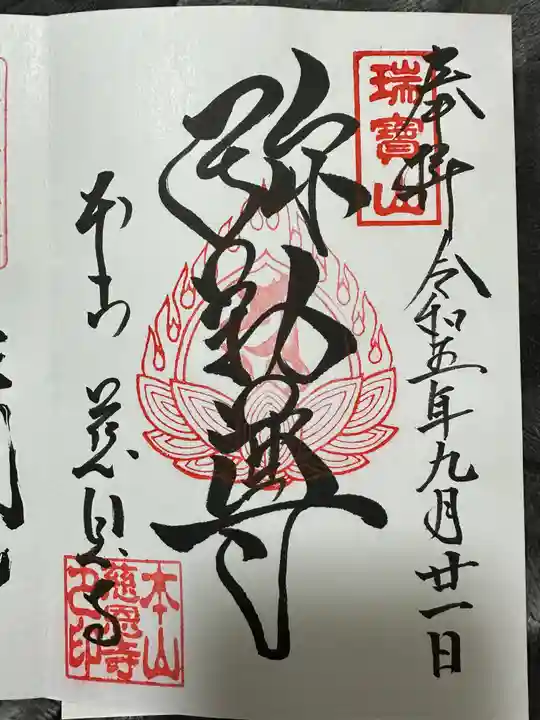 奉拝
令和五年九月廿一日
瑞寶山
弥勒尊
本山 慈恩寺
本山
慈恩寺
之印